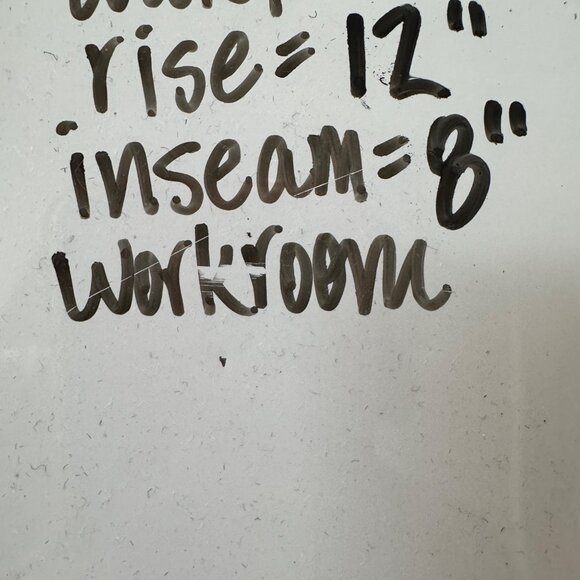 rise= 12"
inseam= 8"
workroom